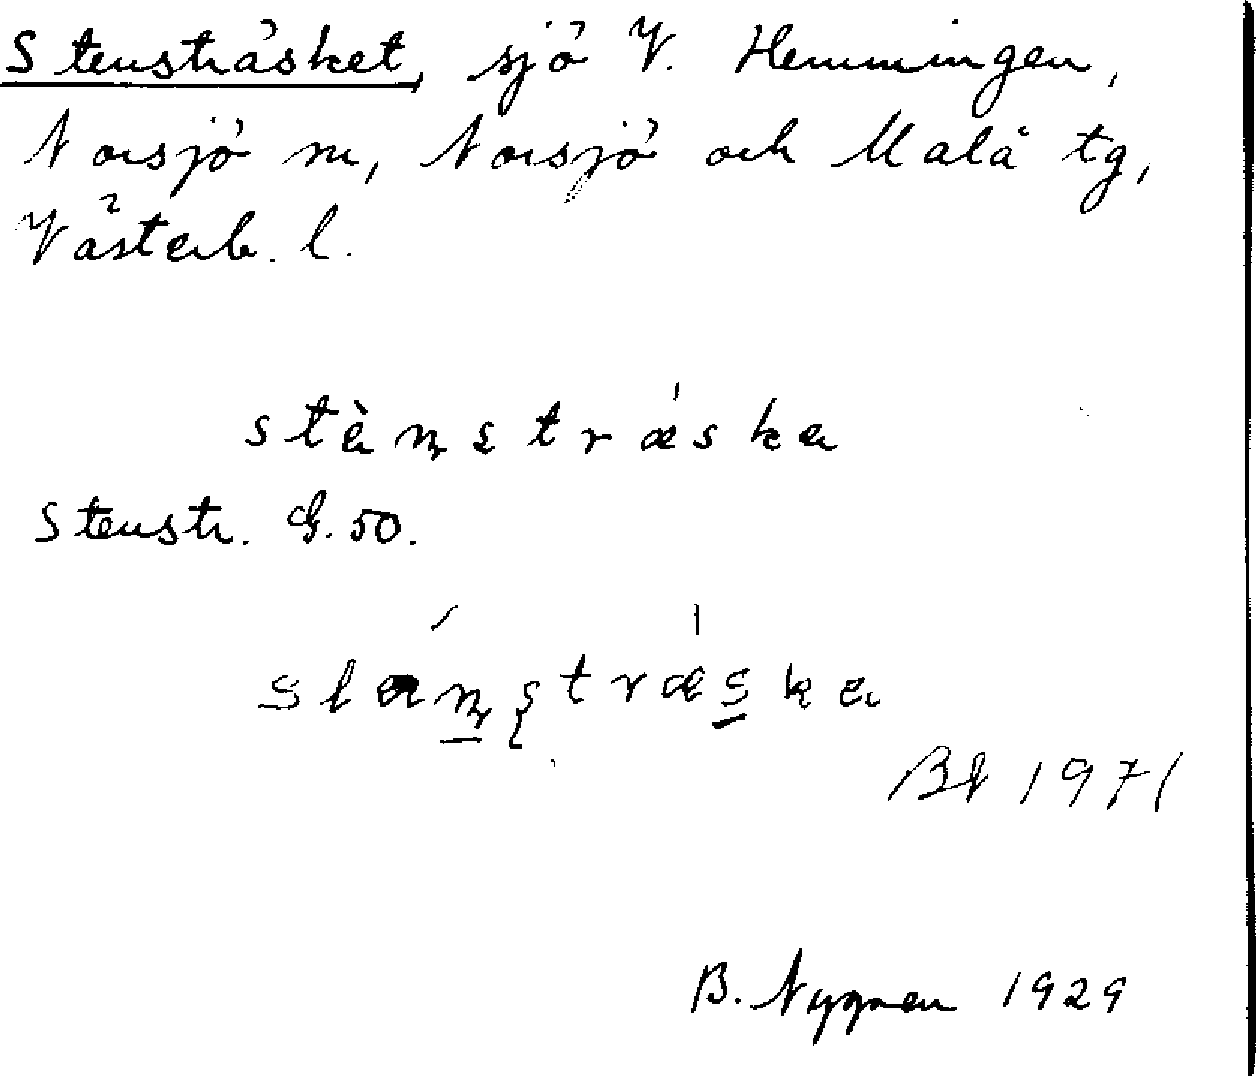 Stensträsket, sjö V. Hemmingen,
Norsjö sn, Norsjö och Malå tg,
Västerb. l.
stènstrǽska
Stenstr. G. 50.
B. Nygren 1929